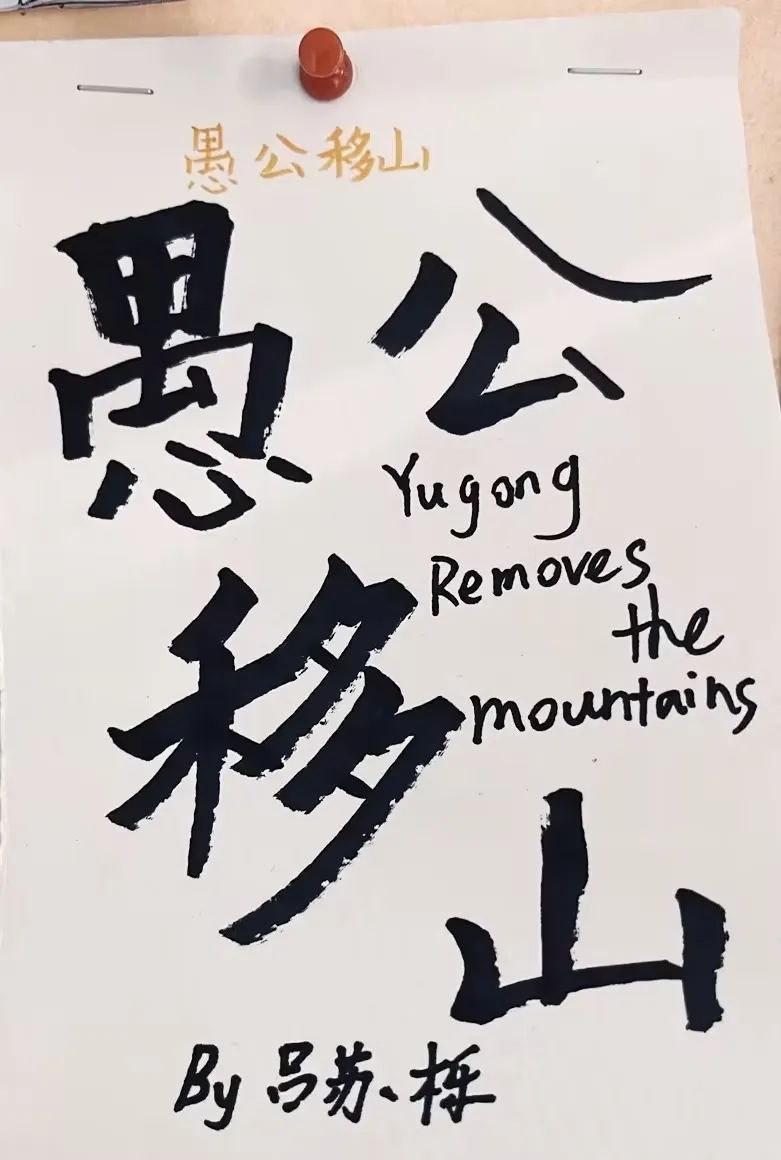 愚公移山
愚公
Yugong
Removes
the
mountains
移
山
By 吕苏、栎